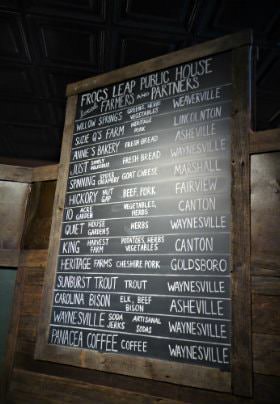 FROGS LEAP PUBLIC HOUSE
FARMERS AND PARTNERS
WILLOW SPRINGS GREENS, HERBS VEGETABLES WEAVERVILLE
SUZIE Q'S FARM HERITAGE PORK LINCOLNTON
ANNIE'S BAKERY FRESH BREAD ASHEVILLE
JUST SIMPLY FRESH BREAD WAYNESVILLE
SPINNING SPIDER CREAMERY GOAT CHEESE MARSHALL
HICKORY NUT GAP BEEF, PORK FAIRVIEW
10 ACRE GARDEN VEGETABLES, HERBS CANTON
QUIET HOUSE GARDENS HERBS WAYNESVILLE
KING HARVEST FARM POTATOES, HERBS VEGETABLES CANTON
HERITAGE FARMS CHESHIRE PORK GOLDSBORO
SUNBURST TROUT TROUT WAYNESVILLE
CAROLINA BISON ELK, BEEF BISON ASHEVILLE
WAYNESVILLE SODA JERKS ARTISANAL SODAS WAYNESVILLE
PANACEA COFFEE COFFEE WAYNESVILLE